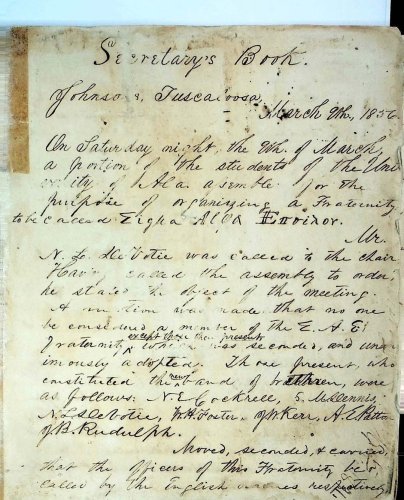 Secretary's Book.
Johnson's, Tuscaloosa,
March 9th, 1856
On Saturday night, the 9th of March,
a portion of the students of the Uni
versity of Ala. asemble for the
purpose of organizing a Fraternity
to be called Sigma Alpha Epsilon.
Mr.
N. L. DeVotie was called to the chair
Having called the assembly to order
he stated the object of the meeting.
A motion was made that no one
be considered a member of the Σ. A. E.
except those then present
Fraternity, which was seconded, and unan
imously adopted. Those present, who
constituted the new band of brethren, were
as follows: N. E. Cockrell, S. M. Dennis,
N. L. DeVotie, W. H. Foster, J. W. Kerr, A. E. Patton
J. B. Rudulph.
Moved, seconded, & carried,
that the officers of this Fraternity be
called by the English names respectively